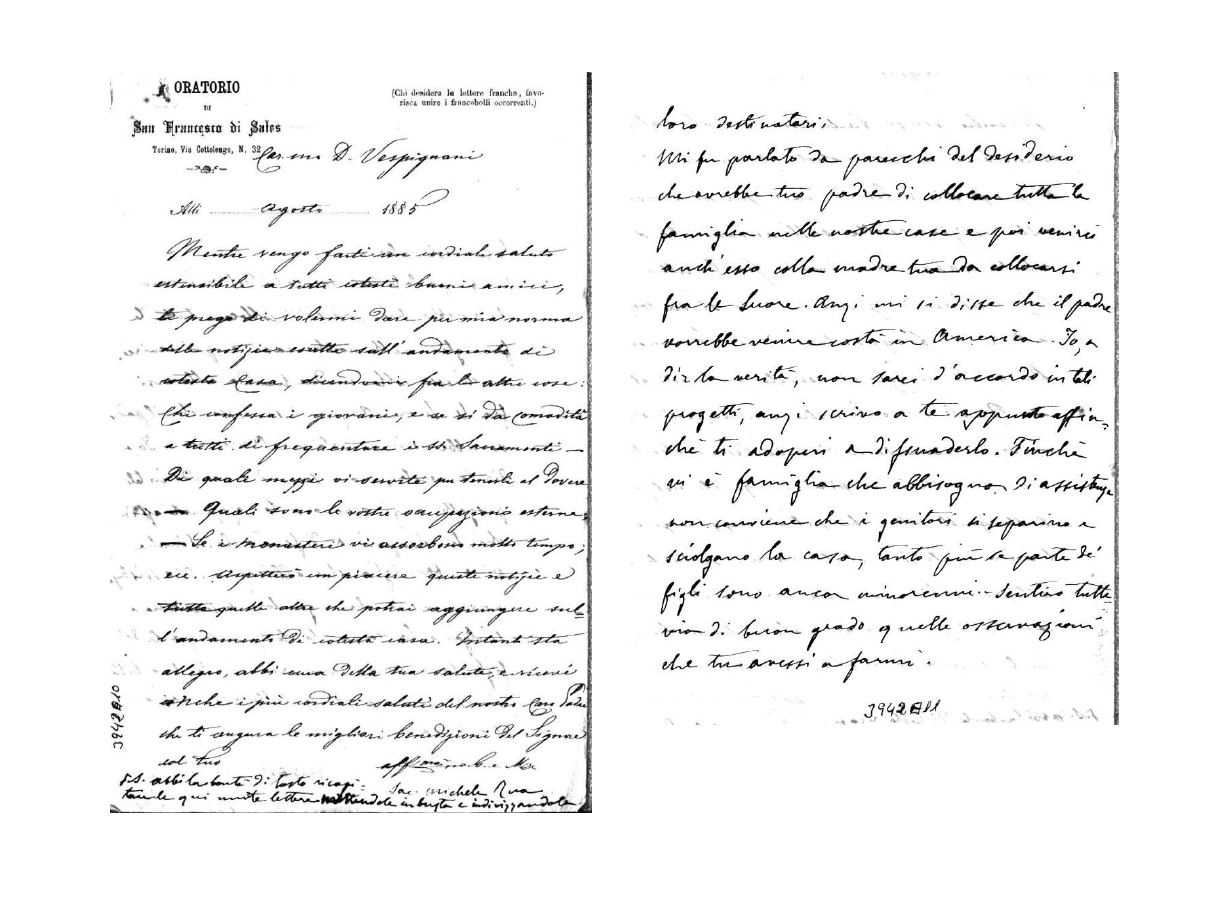 ORATORIO
DI
San Francesco di Sales
Torino, Via Cottolengo, N. 32
(Chi desidera le lettere franche, favo-
risca unire i francobolli occorrenti.)
Car.mo D. Vespignani
Alli Agosto 1885
Mentre vengo farti un cordiale saluto
estensibile a tutti cotesti buoni amici,
ti prego di volermi dare per mia norma
delle notizie esatte sull'andamento di
cotesta Casa, dicendomi fra le altre cose:
Chi confessa i giovani, e se si dà comodità
a tutti di frequentare i SS. Sacramenti —
Di quali mezzi vi servite per tenerli al Dovere
— Quali sono le vostre occupazioni esterne,
— Se i monasteri vi assorbono molto tempo;
ecc. Aspetterò con piacere queste notizie e
tutte quelle altre che potrai aggiungere sul=
l'andamento di cotesta casa. Intanto sta
allegro, abbi cura della tua salute, e ricevi
anche i più cordiali saluti del nostro Caro Padre
che ti augura le migliori benedizioni del Signore
col tuo
aff.mo in G. e M.
Sac. Michele Rua
P.S. Abbi la bontà di tosto ricapi=
tare le qui unite lettere mettendole in busta e indirizzandole
3942B10
loro destinatari.
Mi fu parlato da parecchi del desiderio
che avrebbe tuo padre di collocare tutta la
famiglia nelle nostre case e poi venire
anch'esso colla madre tua da collocarsi
fra le Suore. Anzi mi si disse che il padre
vorrebbe venire costà in America. Io, a
dir la verità, non sarei d'accordo in tali
progetti, anzi scrivo a te appunto affin=
chè ti adoperi a dissuaderlo. Finchè
vi è famiglia che abbisogna di assistenza
non conviene che i genitori si separino e
sciolgano la casa, tanto più se parte de'
figli sono ancor minorenni. Sentirò tutta
via di buon grado quelle osservazioni
che tu avessi a farmi.
3942B11